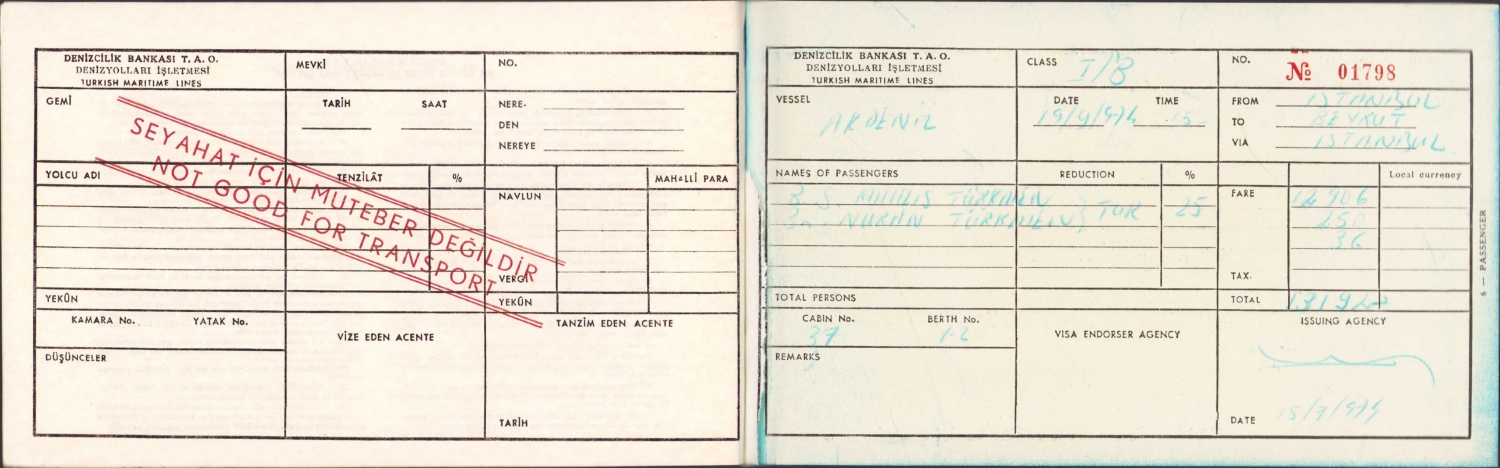 DENİZCİLİK BANKASI T. A. O.
DENİZYOLLARI İŞLETMESİ
TURKISH MARITIME LINES
MEVKİ
NO.
GEMİ
TARİH SAAT
NERE-
DEN
NEREYE
SEYAHAT İÇİN MUTEBER DEĞİLDİR
NOT GOOD FOR TRANSPORT
YOLCU ADI
TENZİLÂT
%
MAHALLİ PARA
NAVLUN
VERGİ
YEKÛN
YEKÛN
KAMARA No. YATAK No.
VİZE EDEN ACENTE
TANZİM EDEN ACENTE
DÜŞÜNCELER
TARİH
DENİZCİLİK BANKASI T. A. O.
DENİZYOLLARI İŞLETMESİ
TURKISH MARITIME LINES
CLASS I/B
NO.
№ 01798
VESSEL
DATE TIME
15
FROM ISTANBUL
TO BEYRUT
VIA ISTANBUL
NAMES OF PASSENGERS
REDUCTION
%
Local currency
TÜRKMEN
NURAN TÜRKMEN } TUR 25
FARE 12906
250
36
TAX.
TOTAL PERSONS
TOTAL
CABIN No. BERTH No.
37 1-2
VISA ENDORSER AGENCY
ISSUING AGENCY
REMARKS
DATE
6 — PASSENGER